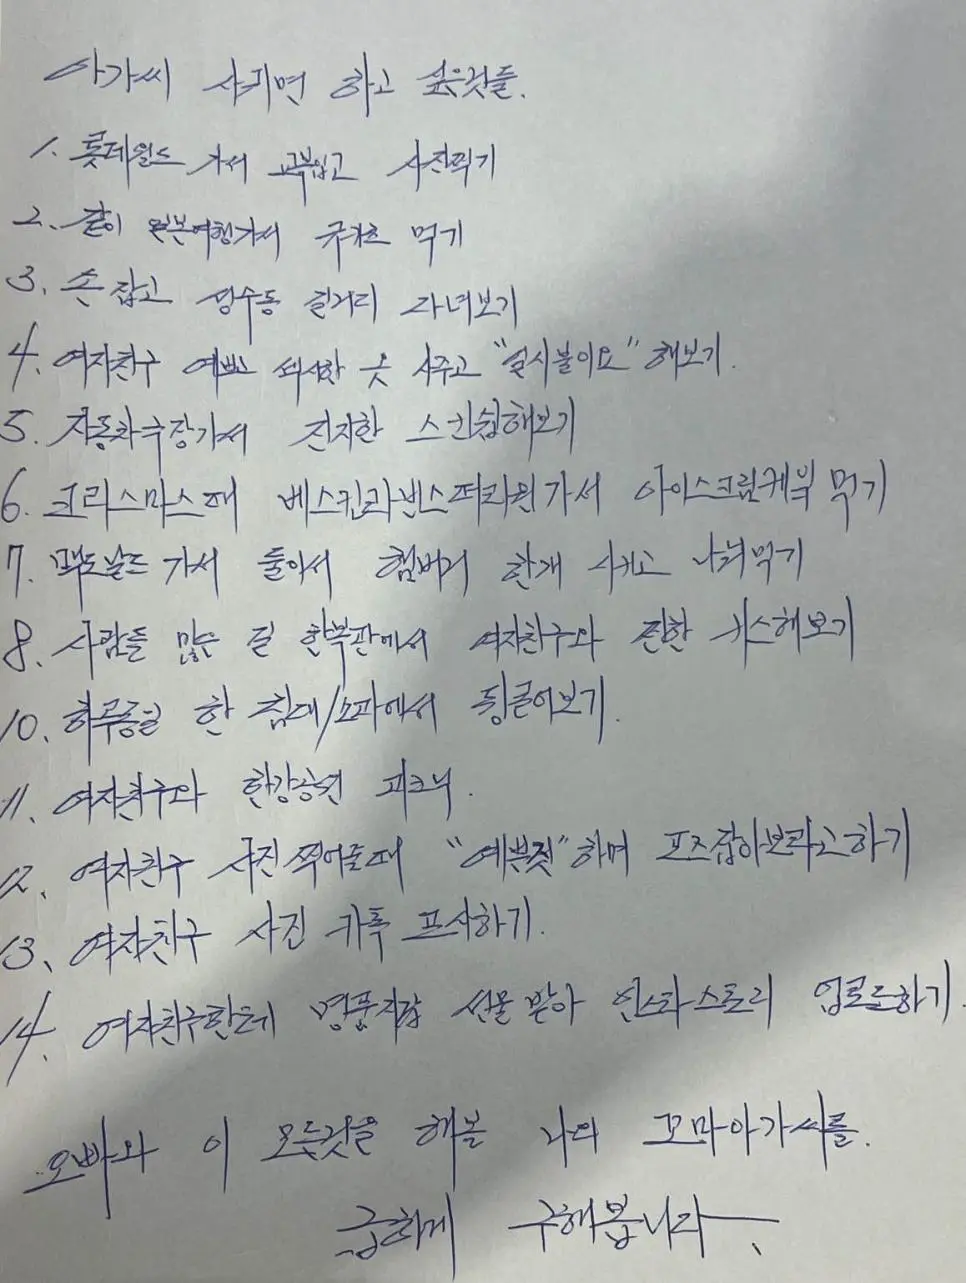 아가씨 사귀면 하고 싶은것들.
1. 롯데월드 가서 교복입고 사진찍기
2. 같이 일본여행가서 규카츠 먹기
3. 손 잡고 성수동 길거리 다녀보기
4. 여자친구 예쁘고 섹시한 옷 사주고 "일시불이요" 해보기.
5. 자동차극장가서 진지한 스킨쉽해보기
6. 크리스마스때 베스킨라빈스파라원 가서 아이스크림케익 먹기
7. 맥도날드 가서 둘이서 햄버거 한개 시키고 나눠먹기
8. 사람들 많은 길 한복판에서 여자친구와 진한 키스해보기
10. 하루종일 한 침대/소파에서 뒹굴어보기.
11. 여자친구와 한강공원 피크닉.
12. 여자친구 사진 찍어줄때 "예쁜짓"하며 포즈잡아보라고하기
13. 여자친구 사진 카톡 프사하기.
14. 여자친구한테 명품지갑 선물 받아 인스타스토리 업로드하기.
오빠와 이 모든것을 해볼 나의 꼬마아가씨를.
급하게 구해봅니다